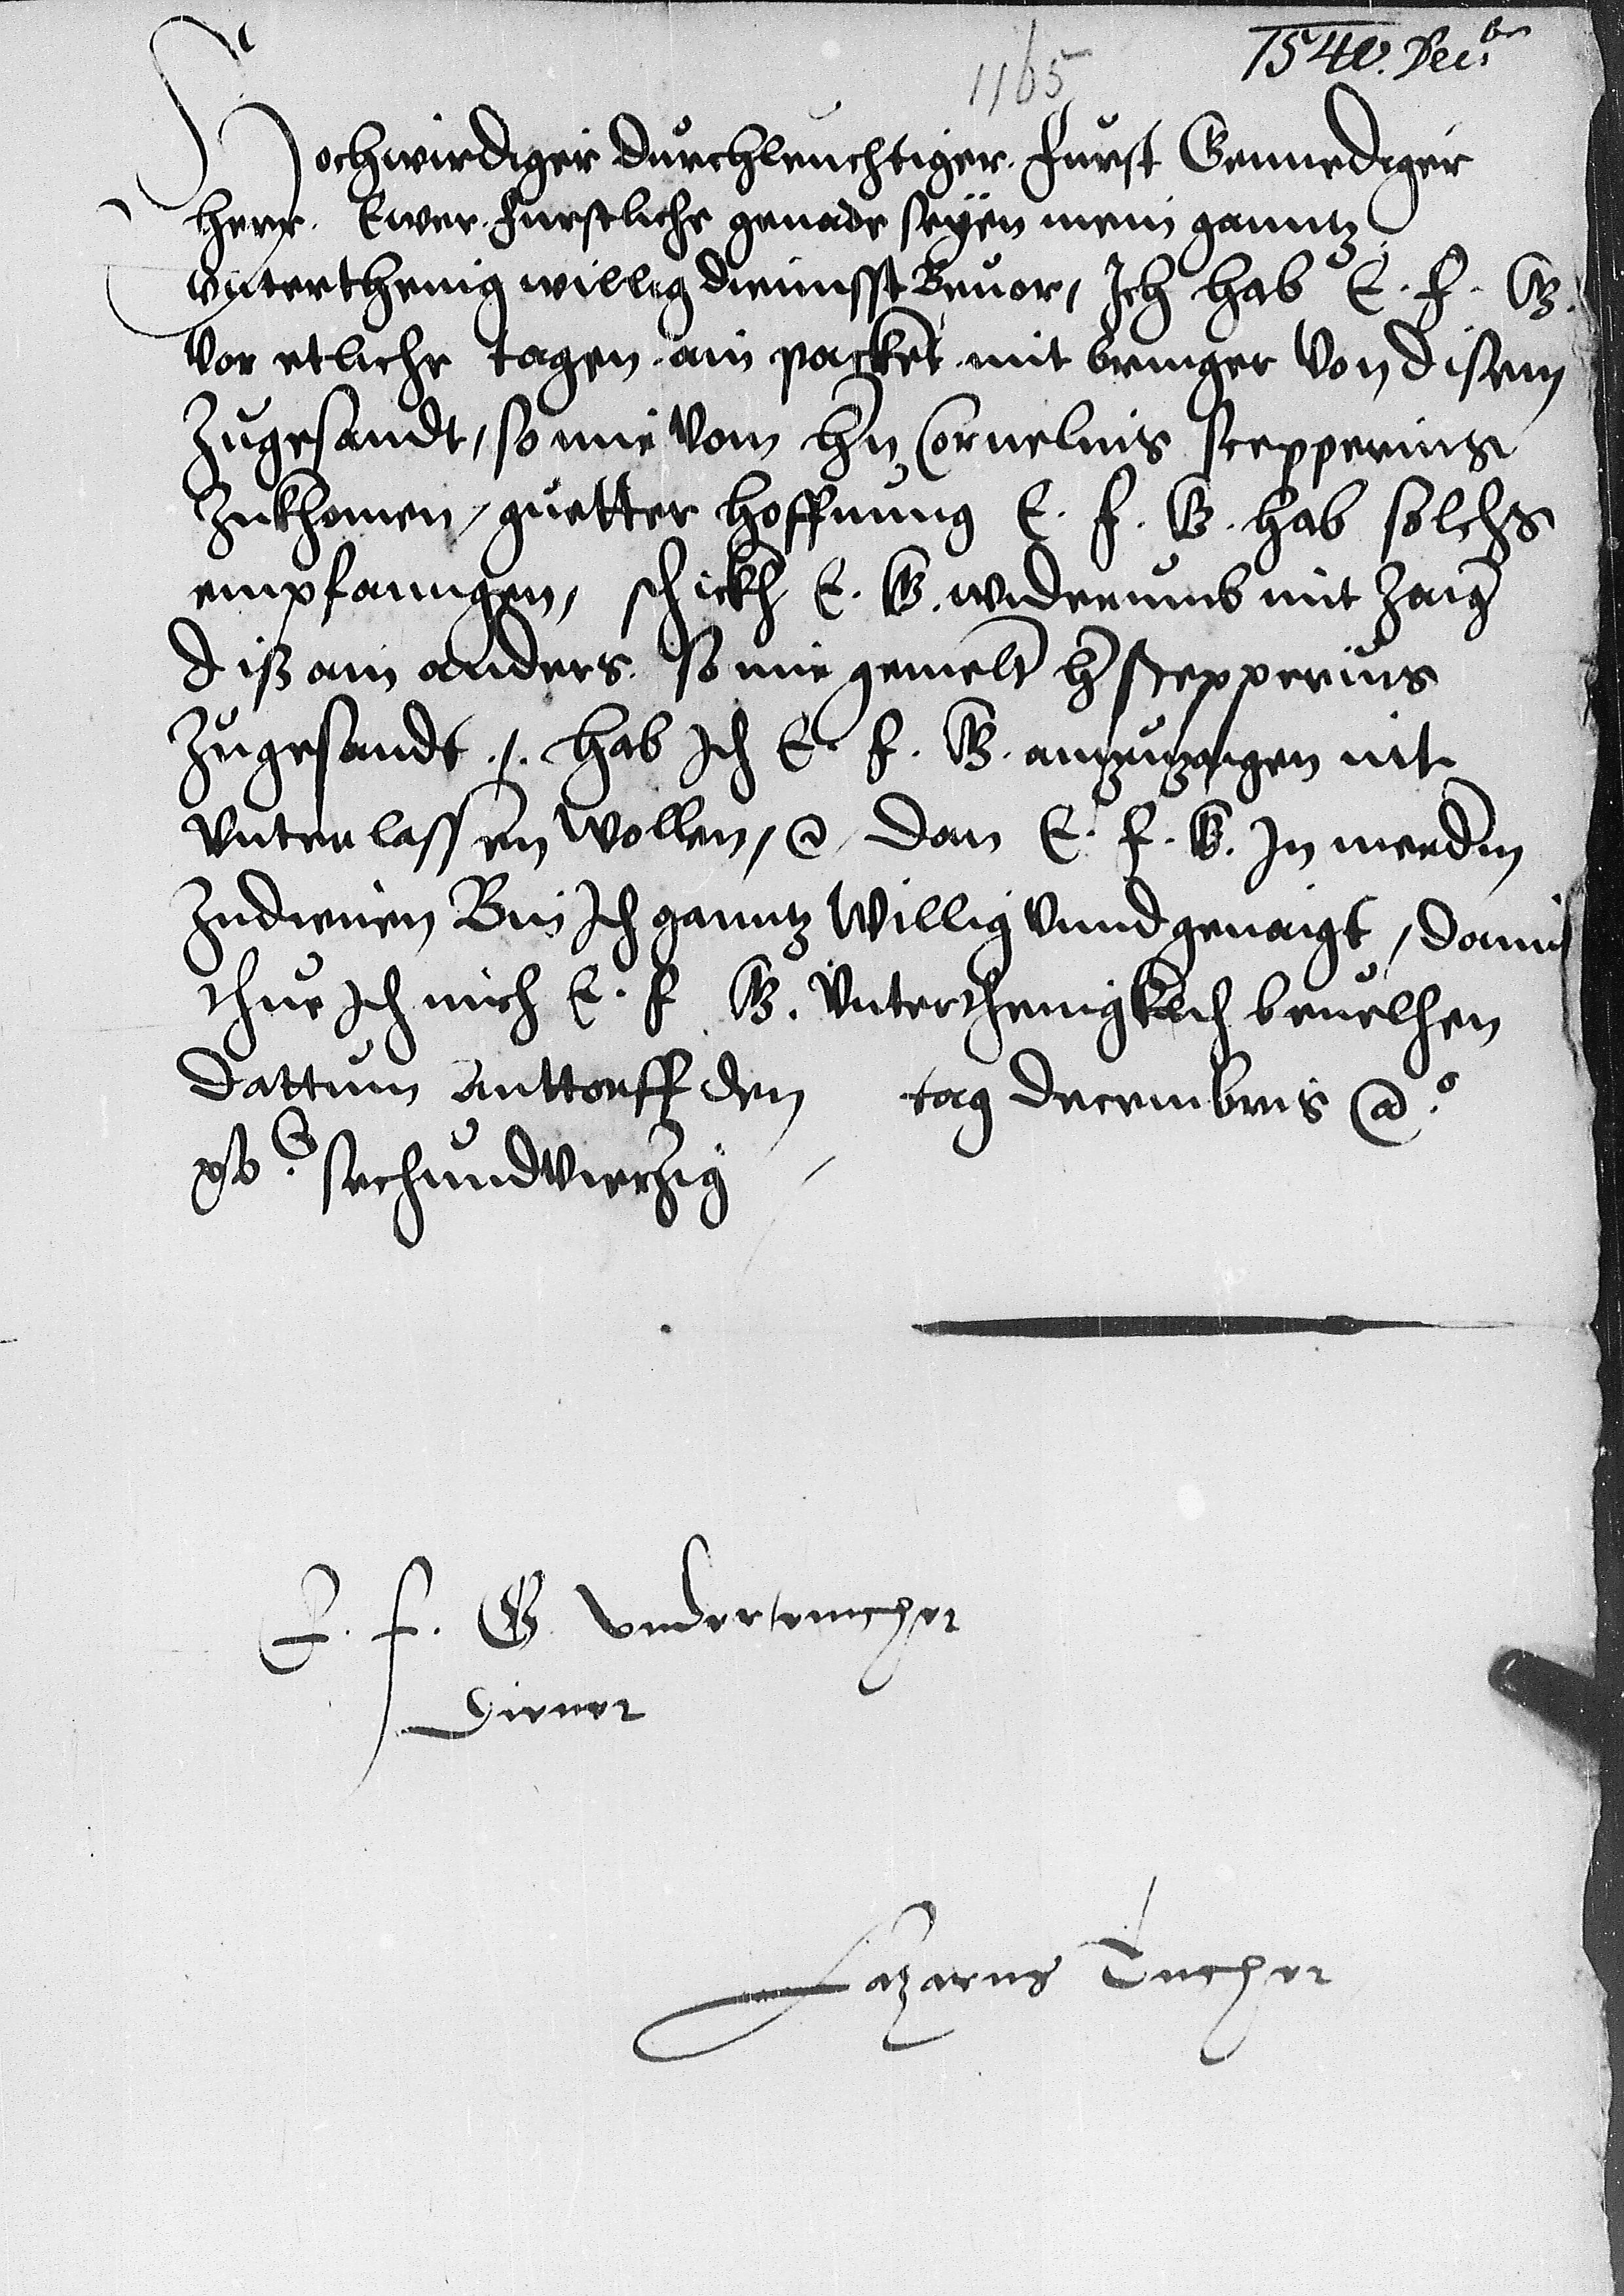 1540. Decbr
1165
Hochwirdiger Durchleuchtiger Furst Gennediger
Herr. Ewer Furstliche genade seyen mein ganntz
unterthenig willig diennsst Beuor, Ich hab E. F. G.
Vor etliche tagen ain packet mit bringer Von disem
Zugesandt, so mir Vom Hn Cornelius Scepperius
Zukhomen, guetter hoffnung E. F. G. hab solchs
empfanngen, schickh E. G. widerumb mit Zaig
diß ain anders. so mir gemelt H Scepperius
Zugesandt ./. hab Ich E. F. G. antzutzaigen nit
Unterlassen Wollen, Dan E. F. G. In
Zudienen Bin Ich ganntz Willig Unnd genaigt, damit
thue Ich mich E. F G. Unterthenigklich beuelhen
Dattum Anttorff den tag Decembris a.o
xvc sechundVierzig
E. F. G. undertenicher
Diener
Lazarus Tucher